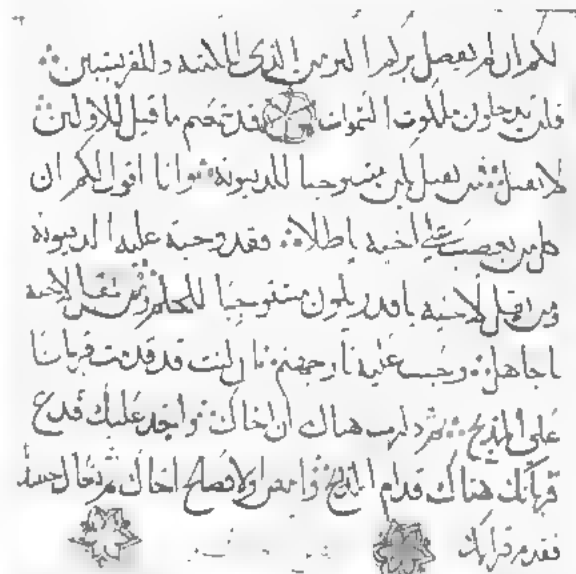 لكم ان لم يفضل بركم اكثر من الذي للكتبه وللفريسيين
فلن تدخلون ملكوت السموات قد سمعتم ما قيل للاولين
لا تقتل ومن يقتل يكن مستوجبا للدينونة وانا اقول لكم ان
كل من يغضب على اخيه باطلا فقد وجبة عليه الدينونة
ومن يقل لاخيه يا قدر يكون مستوجبا للمحفل ومن يقل لاخيه
يا جاهل وجبت عليه نار جهنم فان كنت قد قدمت قربانا
على المذبح ثم ذكرت هناك ان اخاك واجد عليك فدع
قربانك هناك قدام المذبح وامض اولا فصالح اخاك ثم تعال حينئذ
فقدم قربانك